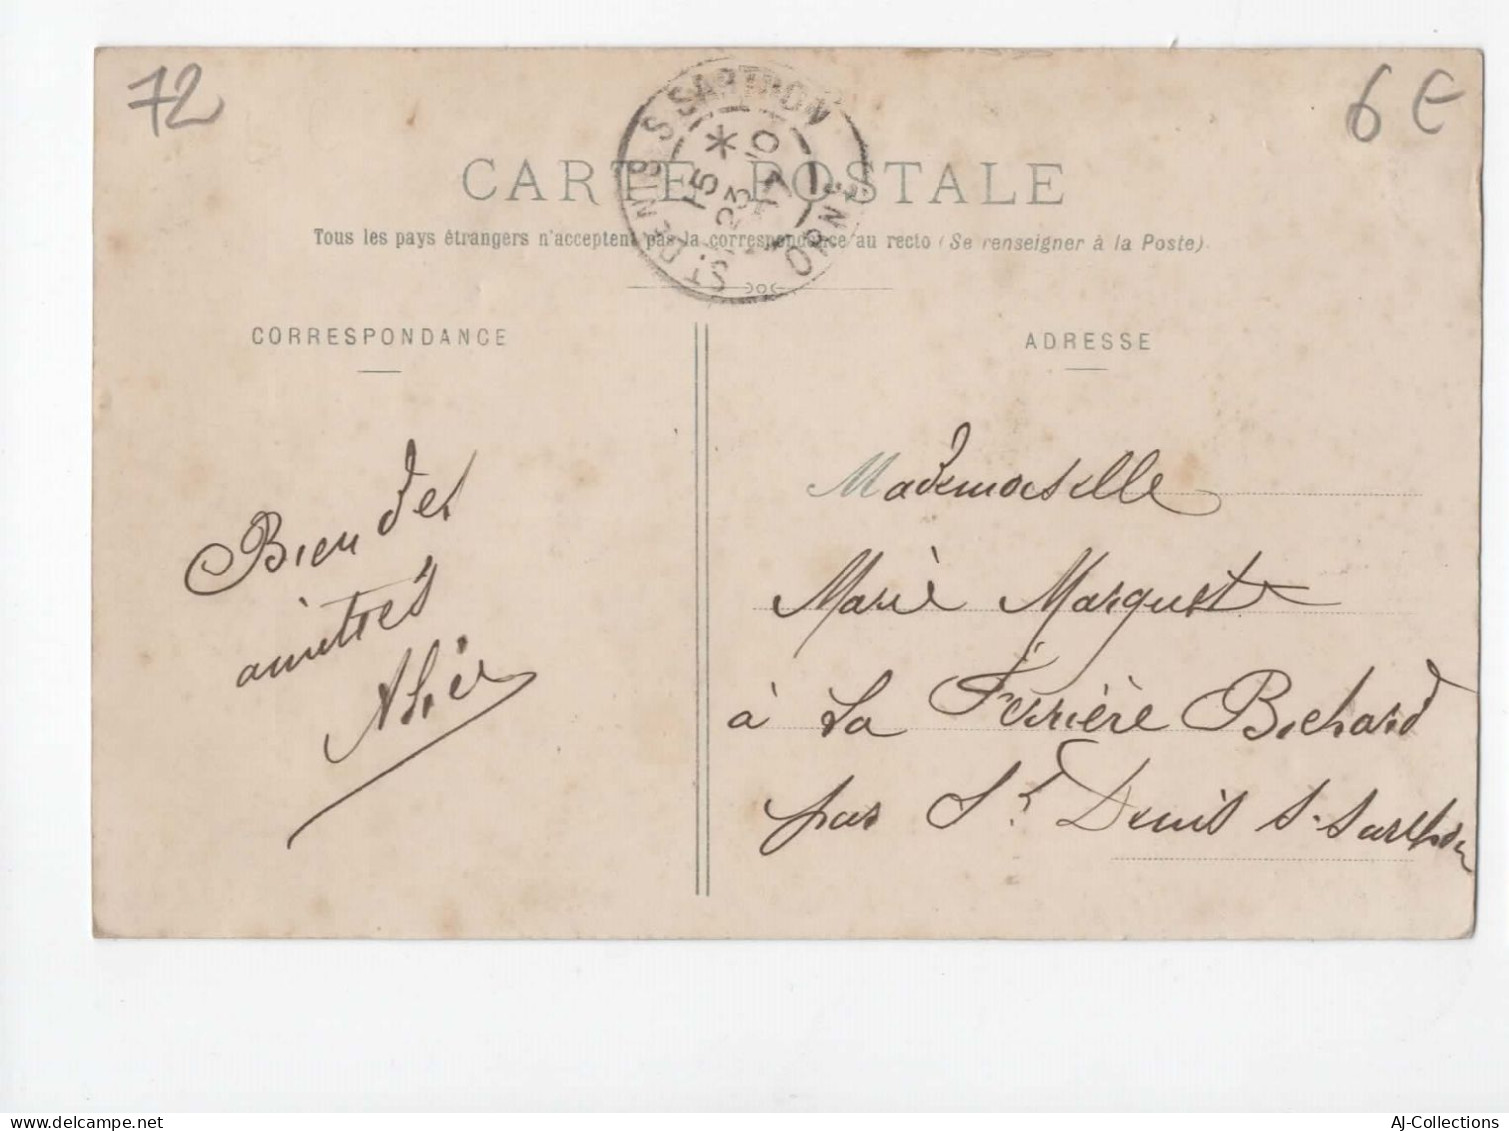 72
6€
ST. DENIS S SARTHON
ORNE
CARTE POSTALE
Tous les pays étrangers n'acceptent pas la correspondance au recto (Se renseigner à la Poste)
CORRESPONDANCE
ADRESSE
Bien des
amitiés
Mademoiselle
Marie Marquet
à La Ferrière Bochard
par St Denis S. Sarthon
AJ-Collections